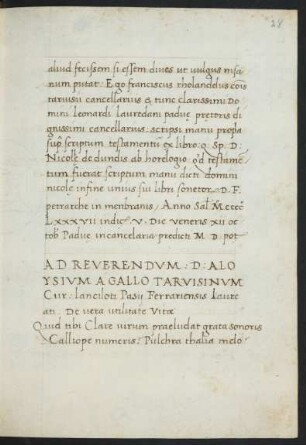 28
aliud fecissem si essem dives ut vulgus insa
num putat. Ego franciscus rholandelus cois
tarvisii cancellarius & tunc clarissimi Do
mini leonardi lauredani padue pretoris di
gnissimi cancellarius scripsi manu propa
sup scriptum testamentu ex libro q. Sp. D:
Nicole de dundis ab horelogio: qd testame
tum fuerat scriptum manu dicti domini
nicole in fine unius sui libri sonetor D. F.
petrarche in menbranis. Anno Sal. M. cccc
Lxxxvii indic. V. Die veneris xii oc
tob Padue in cancelaria predicti M. D. pot
AD REVERENDVM .D. ALO
YSIVM A GALLO TARVISINVM
Cur. lanciloti Pasii Ferrariensis Laure
ati. De vera utilitate Vitæ
Quid tibi Clare virum praeludat grata sonoris
Calliope numeris: Pulchra thalia melo